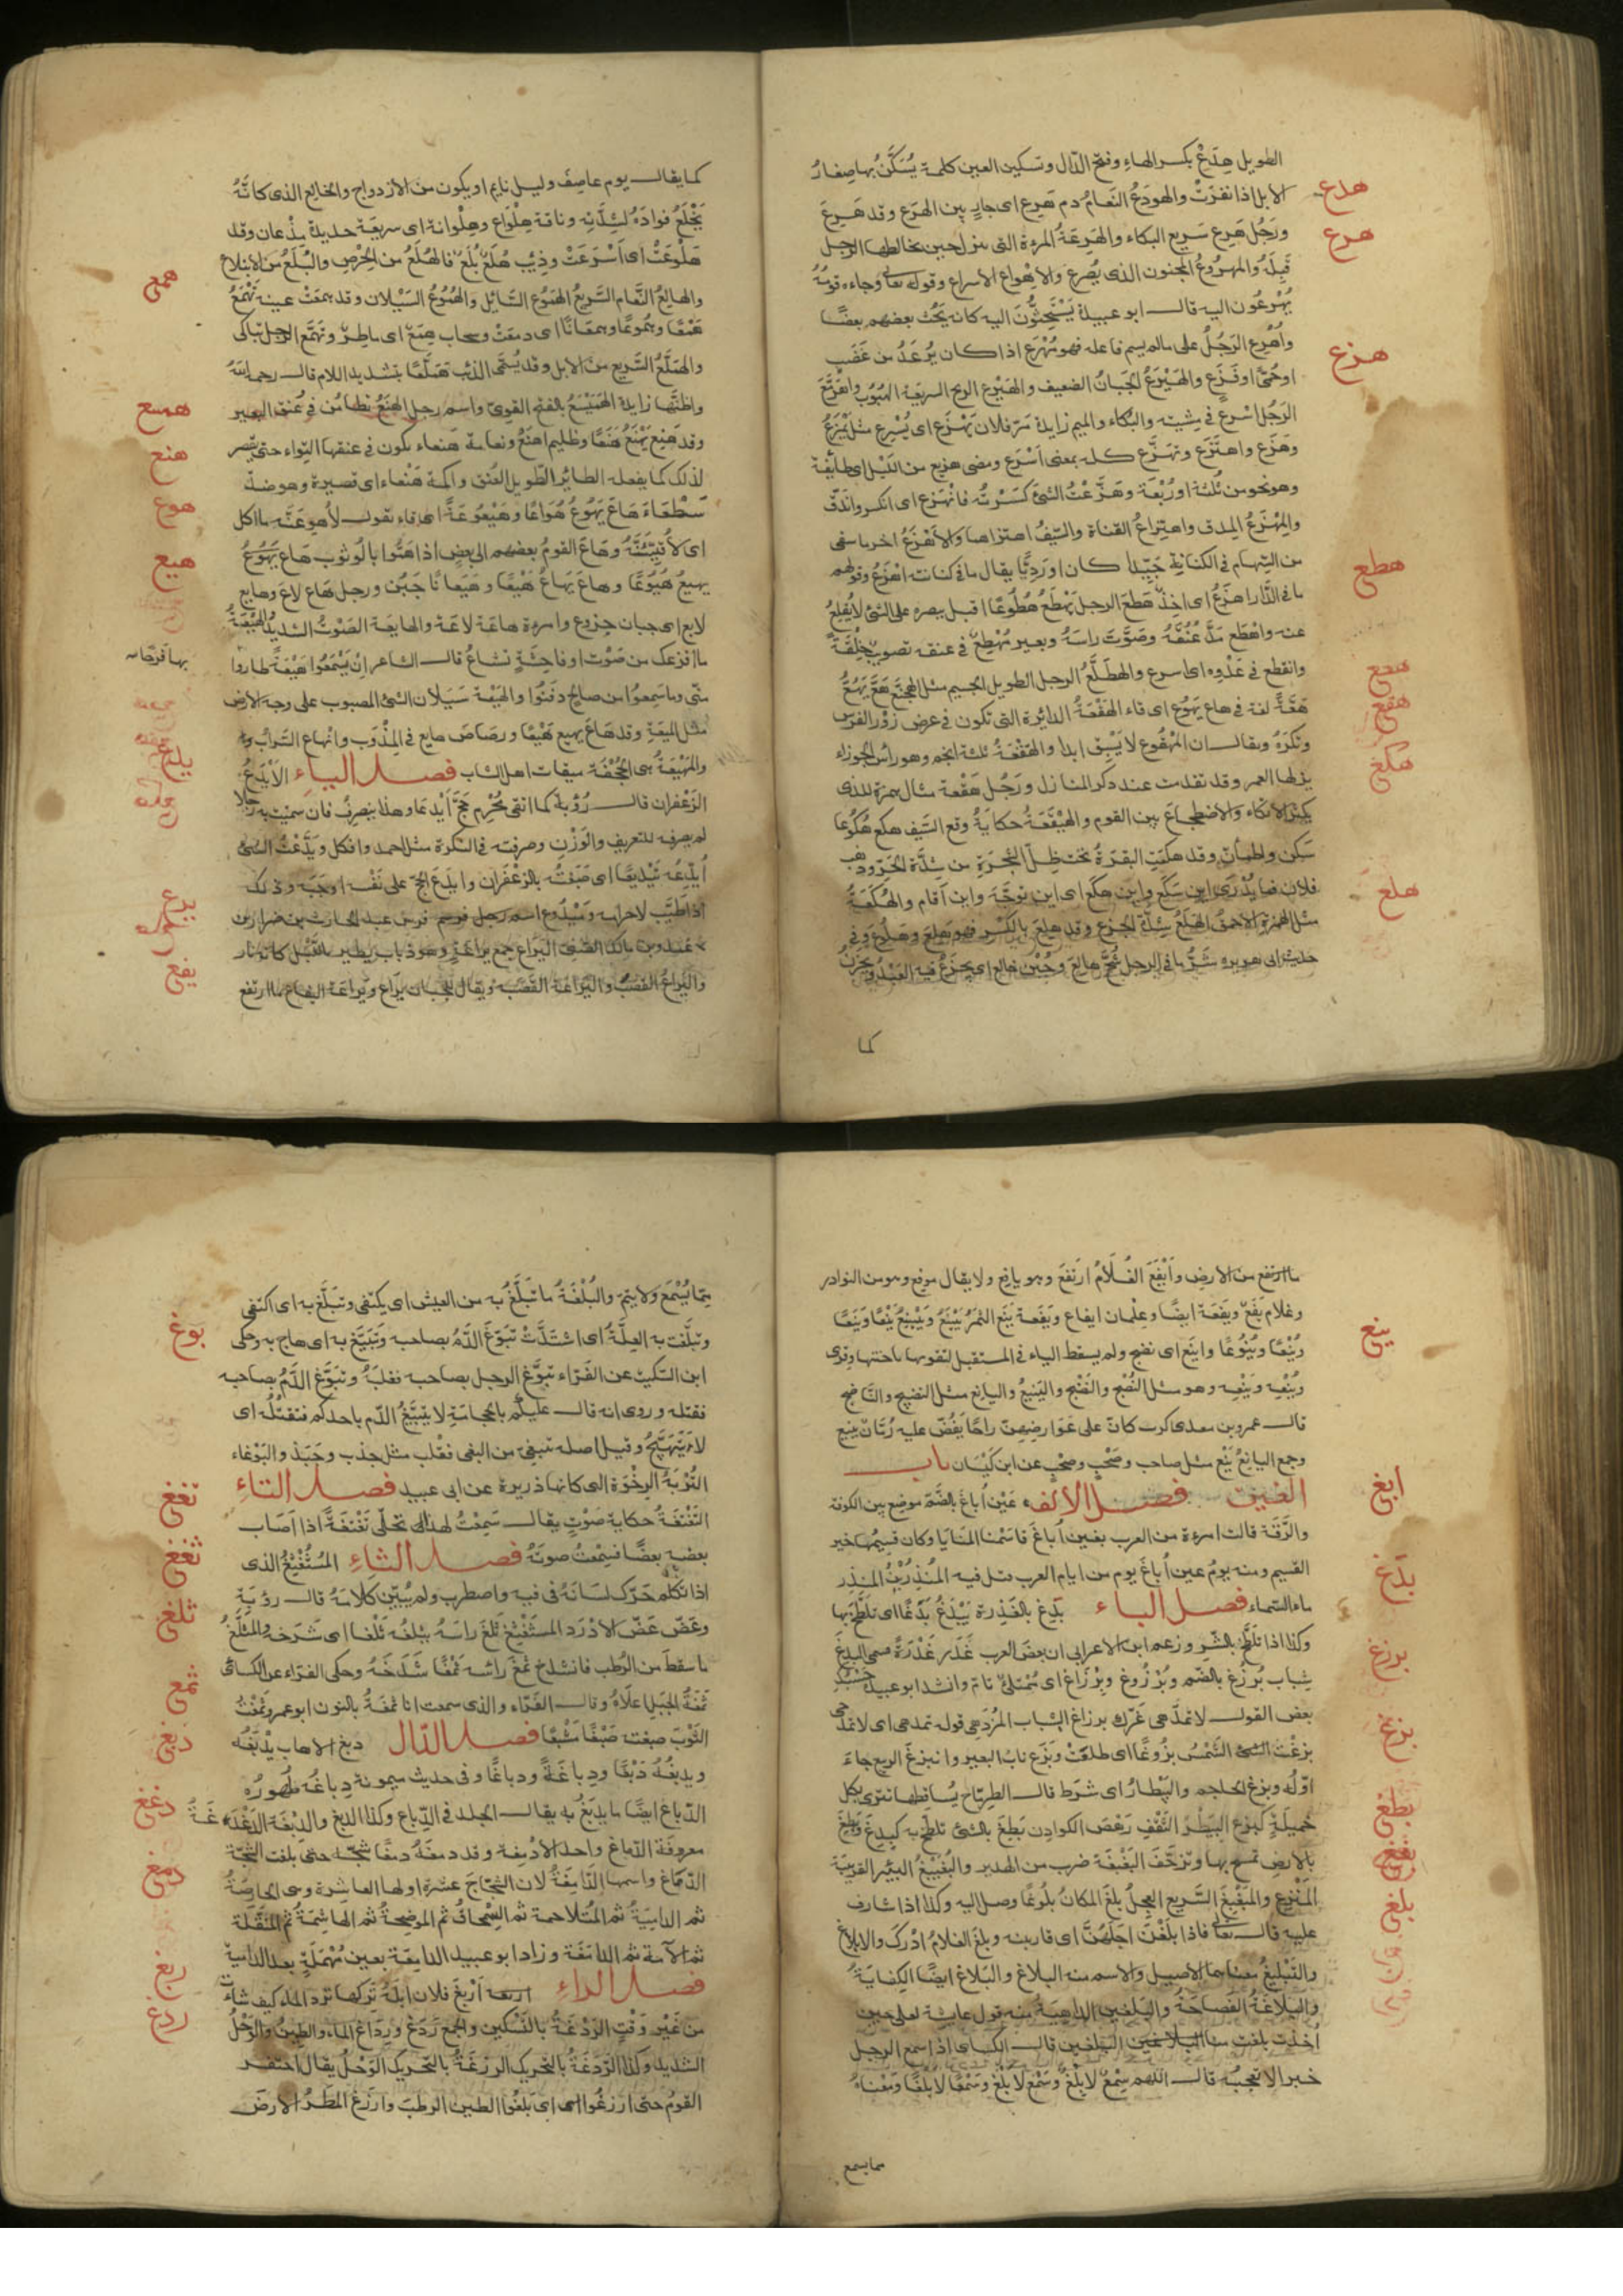 الطويل هِدَعْ بكسر الهاءِ وفتح الدّال وتسكين العين كلمة يُسَكَّنُ بها صِغارُ
هدع
الابل اذا نفرَتْ والهودَعُ النَعامُ دم هَرِع اى جارٍ بيّن الهَرَع وقد هَرِعَ
هرع
ورَجُل هَرِع سَريع البكاء والهَرِعَةُ المرءة التى تنزل حين يخالطها الرجل
قَبلَهُ والمهرُوعُ المجنون الذى يُصْرَع والاهْراع الاسراع وقوله تعالى وجاءه قومُهُ
يُهْرَعُون اليه قال ابو عبيدة يَسْتَحِثُّونَ اليه كانه يَحُثّ بعضهم بعضًا
واُهْرِع الرَجُلُ على مالم يسم فاعله فهو مُهْرَع اذا كان يُرعَدُ من غَضَبٍ
هزع
اوحُمَّى اوفَزَعٍ والهَيْرَعُ الجَبانُ الضعيف والهَيْرَع الريح السريعة الهُبُوب واهْتَزَعَ
الرَجُل اسْرع فى مِشيته والبُكاء والميم زايدة مَرّ فلان يَهْزَع اى يُسْرِع مثل يَمْزَعُ
وهَزَع واهتَزَع وتهَزَّع كله بمعنى اَسْرَع ومضى هزيع من اللَيْل اى طائفة
وهو نحو من ثُلُثه اورُبْعَه وهَزَّعْتُ الشئَ كَسَرْتُه فانْهَزع اى انكسر واندَقّ
والمِهْزَعُ المِدق واهتِزاعُ القناة والسَّيفُ اهتزازهما والاَهْزَعُ اخر ما يبقى
من السِهام فى الكِنانة جَيِّدًا كان اورَدِيًّا يقال ما فى كنانته اهْزَعُ وقولهم
هطع
ما فى الدّار اهزَعُ اى احَدٌ هَطَعَ الرجل يَهْطَعُ هُطُوعًا اقبل ببصره على الشئ لايُقلِعُ
عنه واهْطَع مَدَّ عُنُقَهُ وصَوَّبَ راسَهُ وبعير مُهْطِعٌ فى عنقه تصويب خِلْقَةً
هعع
وانقطع فى عَدْوِه اى اسرع والهَطَلَّعُ الرجل الطويل الجسيم مثل الهجنّع هَعَّ يَهُعُّ
هقع
هَعَّةً لغة فى هاع يَهُوع اى قاء الهَقْعَةُ الدائرة التى تكون فى عرض زَوْر الفرس
وتُكرَهُ ويقال ان المَهْقُوع لا يَسْبِق ابدا والهَقْعَةُ ثلثة انجم وهو راس الجوزاء
هكع
ينزلها القمر وقد تقدمت عند ذكر المنازل ورَجُل هُقْعة مثال همزة للذى
يكثر الاتكاء والاضطجاع بين القوم والهَيْقَعَةُ حكايةُ وقع السَيف هكع هُكُوعا
سَكن واطمأن وقد هكعت البقرةُ تحت ظِلّ الشجرة من شِدَّة الحَرّ وذهب
هلع
فلان فما يُدْرى اين سَكَع واين هكع اى اين توجّه واين اَقام والهُكَعَةُ
مثل الهمزة الاحمق الهَلَعُ شِدّة الجزع وقد هلِعَ بالكَسْر فهو هَلِع وهَلُوع وفى
حديث ابى هريره شَرُّ ما فى الرجل شُحّ هالِع وجُبْن خالع اى يَجزَعُ فيه العَبْدُ ويَحْزَنُ
كما
كما يقال يوم عاصِف وليل نايم اويكون من الازدواج والخالع الذى كانَّهُ
يَخْلَعُ فوادَهُ لشِدَّته وناقة هِلْواع وهِلْواعة اى سريعَة حديدة مِذْعان وقد
هَلْوَعَتْ اى اَسْرَعَتْ وذِئب هُلَعٌ بُلَعٌ فالهُلَعُ من الحِرْص والبُلَعُ من الابتلاع
همع
والهالِعُ النَّعام السَّريعُ الهَمُوع السّائل والهُمُوعُ السَيْلان وقد همَعَتْ عينه تَهْمَعُ
هَمْعًا وهُمُوعًا وهمَعَانًا اى دمعَتْ وسحاب هَمِعٌ اى ماطِرٌ وتهمّع الرجل تباكى
والهَمَلّعُ السّريع من الابل وقد يُسمّى الذئب هَمَلّعًا بتشديد اللام قال رحمه الله
همسع
واظنّها زايدة الهَمَيْسَعُ بالفتح القوىّ واسم رجل الهَنَعُ تطامُن فى عُنق البعير
هنع
وقد هَنِع يَهْنَعُ هَنَعًا وظليم اهنَعُ ونعامة هَنعاء يكون فى عنقها التواء حتى يقصر
لذلك كما يفعله الطائر الطّويل العُنق واكمة هَنْعاء اى قصيرة وهو ضدّ
هوع
سَطْعَاءَ هَاعَ يَهُوعُ هُوَاعًا وهَيْعُوعَةً اى قاء يقول لأهوِّعَنَّه ما اكل
اى لأُقَيِّئَنَّهُ وهَاعَ القومُ بعضهم الى بعض اذا هَمُّوا بالوثوب هَاع يَهُوعُ
هيع
يهيعُ هُيُوعًا وهاعَ يَهاعُ هَيْعًا وهَيَعانًا جَبُن ورجل هَاع لاعَ وهايع
لايع اى جبان جزوع وامرءة هاعة لاعَة والهايعة الصَوْتُ الشديد الهَيْعَةُ
ما افزعك من صَوْت اوفاحِشَةٍ تشاعُ قال الشاعر اِنْ يَسْمَعُوا هَيْعَةً طاروا
بها فَرَحًا
منّى وما سَمِعُوا من صالح دفَنُوا والهَيْعَة سَيَلان الشئ المصبوب على وجه الارض
مثل الميعَةِ وقد هَاعَ يهيع هَيْعًا ورصَاص هايع فى المِذْوَب وانهاع السَرابُ
يدع
والمَهْيَعَةُ هى الجُحْفَة ميقات اهل الشاب فصل الياءِ الاَيْدَعُ
الزعْفران قال رُؤبة كما اتقى مُحْرِم حَجٍّ اَيْدعَا وهذا ينصرفُ فان سميْت به رجلا
لم يصرفه للتعريف والوَزْن وصرفته فى النكرة مثل احمد وافكل ويَدَّعْتُ الشئ
اُيَدِّعُه تَيْديعًا اى صَبَغتُه بالزعْفران وايدَعَ الحجّ على نَفْسه اوجَبَه وذلك
يرع
اذا طَيَّب لاحرامه ومَيْدُوع اسم رجل فرس عبد الحارث بن ضرار بن
بن مالك الضبّى اليَراع جمع يراعَةٍ وهو ذباب يطير بالليل كانه نار
يفع
واليَراعُ القَصَبُ واليَرَاعَة القَصَبَة ويقال للجَبان يَراع ويَراعَة اليفاع ما ارتفع
ما ارتفع من الارض واَيْفَعَ الغُلَامُ ارتفعَ وهو يافِع ولا يقال موفِع وهو من النوادر
وغلام يَفَعٌ ويَفَعَة ايضًا وغِلْمان ايفاع ويَفَعة يَنَع الثمَرُ يَيْنَعُ ويَيْنِعُ يَنْعًا ويَنَعًا
ينع
ويُنْعًا ويُنُوعًا واينَع اى نضج ولم يسقط الياء فى المستقبل لتقويها باختها وقرئ
ويُنْعِهِ ويَنْعِهِ وهو مثل النُضْج والنَضْج واليَنيعُ واليانع مثل النضيج والنّاضج
قال عمرو بن معدى كرب كانّ على عَوَارِضِهِنّ راحًا يُفَضّ عليه رُمّان ينِيع
وجمع اليانعُ يَنْع مثل صاحب وصَحْب وصَحْب عن ابن كَيْسَان باب
ابغ
الغين فصل الالف عَيْن اُباغَ بالضّمّ موضع بين الكوفة
والرَقّة قالت امرءة من العرب بغين اُباغَ قاسَمْنا المنايَا وكان قسيمُها خير
القسيم ومنه يومُ عين اُباغَ يوم من ايام العرب قتل فيه المُنذِرُ بْنُ المنذِر
بدغ
ماء السماء فصل الباء بَدِغ بالعَذِرة يَبْدَغُ بَدَغًا اى تلطّخ بها
وكذا اذا تَلطَّخ بالشّر وزعم ابن الاعرابى ان بعضَ العرب غَدَر غَدْرَةً فسمى البدِغَ
برزغ
شِباب بُرزُغ بالضّم وبُرْزُوغ وبِرْزَاغ اى مُمْتلئ تامّ وانشد ابو عبيد
بعض القول لا تمدَّهى غَرّك برزاغ الشباب المُزدَهِى قوله تمدهى اى لا تمدّحى
بزغ
بزغَتْ الشمْسُ بُزُوغًا اى طلعَتْ وبَزغَ نابُ البعير وانبزغ الربيع جاءَ
اوّلُه وبزغ الحاجم والبَيْطارُ اى شرَط قال الطِرمّاح يُساقطها تترى بكل
بطغ
خميلَةٍ كبزغ البيَطْر الثَقْفِ رَهْصَ الكوادن بَطِغَ بالشئ تلطّخ به كبدِغَ وبَطِغَ
بغغ
بالارض تمسّح بها وتزحَّفَ البَغْبَغَة ضرب من الهدير والبُغَيْبِغُ البئر القريبَة
بلغ
المَنْزع والمُبَغْبِغَ السَّريع العَجِلُ بلغَ المكانَ بلُوغًا وصل اليه وكذا اذا شارف
عليه قال تعالى فاذا بلَغْنَ اجَلَهُنَّ اى قاربنه وبلغ الغلامُ ادْركَ والابلاغ
والتَبْليغُ معناهما الاصال والاسم منه البلاغ والبَلاغ ايضًا الكفايةُ
والبَلاغَةُ الفَصاحَةُ والبُلَغين الداهِيَةُ منه قول عايشة لعلى حين
اُخذَت بلغتَ منا البُلَغين قال الكسائى اذا سمع الرجل
خبر الا يعجبُه قال اللهم سِمْعٌ لا بِلْغٌ وسَمْعٌ لا بَلْغٌ وسَمْعًا لا بَلْغًا ومَعْناهُ
مما يسمع
مِمّا يُسْمَع ولا يتمّ والبُلْغَةُ ما تُبلِّغُ به من العيش اى يكتفى وتبلَّغ به اى اكتفى
بوغ
وتبلَّغت به العِلَّةُ اى اشتَدَّتْ تبَوَّغَ الدَّمُ بصاحبه وتَبَيَّغ به اى هاج به وحكى
ابن السكيت عن الفَرّاء تبوَّغ الرجل بصاحبه فغلبَهُ وتَبَوَّغ الدَّمُ بصاحبه
فقتله وروى انه قال عليكم بالحجامَةِ لا يتبيَّغ الدّم باحدكم فتقتُلُه اى
لا يَتَهَيَّجُ وقيل اصله يتبغّى من البغى فقُلب مثل جذب وجَبَذ والبَوْغاء
تغغ
التُرْبَةُ الرِخْوَة التى كانها ذريرة عن ابى عبيد فصل التاءِ
التَغْتَغَةُ حكاية صَوْتٍ يقال سَمِعْتُ لهذا الحَلى تَغْتَغَةً اذا اَصَاب
ثغغ
بعضه بعضًا فسمعْتُ صوتَهُ فصل الثاءِ المُثَغْثِغُ الذى
اذا تكلم حَرّك لسَانَهُ فى فيه واضطرب ولم يُبيّن كلامَهُ قال رؤبَة
ثلغ
وعَضّ عَضّ الادْرَد المثَغْثِغِ ثَلَغَ راسَهُ يَثلَغُه ثَلْغا اى شَدَخه والمُثَلَّغُ
ما سقَطَ من الرُطب فانشدخ ثمغَ راسه ثَمْغًا شَدَخَهُ وحكى الفرّاء عن الكسائى
ثمغ
ثَمَغَةُ الجبَلِ اعلَاهُ وقال الفَرّاء والذى سمعت انا نَمَغَةُ بالنون ابو عمرو ثمَغْتُ
دبغ
الثَوْبَ صبغته صَبْغًا مُشْبَعًا فصل الدّال دبغ الاهابَ يدْبَغُه
ويدبُغُهُ دَبْغًا ودِباغَةً ودباغًا وفى حديث ميمونة دِباغُهُ طُهورُه
دغغ
الدّباغ ايضًا ما يدبَغُ به يقال الجلد فى الدّباغ وكذا الدِبغ والدِبْغَة الدَغْدَغَةُ
معروفة الدّماغ واحد الادْمِغَة وقد دمَغَهُ دمغًا شجّه حتى بلغَت الشَجّة
دمغ
الدّماغ واسمها الدّامِغَةُ لان الشِجاجَ عشرة اولها القاشرة وهى الحارصَةُ
ثم الدامِيَةُ ثم المتلاحمة ثم السِمحاقُ ثم الموضحةُ ثم الهاشِمَةُ ثم المنقّلة
ثم الآمة ثم الدامغَة وزاد ابو عبيد الدامِعَة بعين مُهْمَلَةٍ بعد الدامية
ربغ
فصل الراءِ اَرْبَغَ فلان ابلَهُ تركها ترد الماء كيف شاءَت
ردغ
من غَيْر وَقْتٍ الرَدْغَةُ بالتَّسْكين والجمع رَدَغ ورِدَاغ الماء والطِينُ والوَحْلُ
الشديد وكذا الرَدَغَةُ بالتحريك الرزغَةُ بالتحريك الوَحْلُ يقال احتفَر
القومُ حتى ارزغُوا اى بَلَغُوا الطين الرطبَ وارْزَغَ المَطَرُ الارضَ